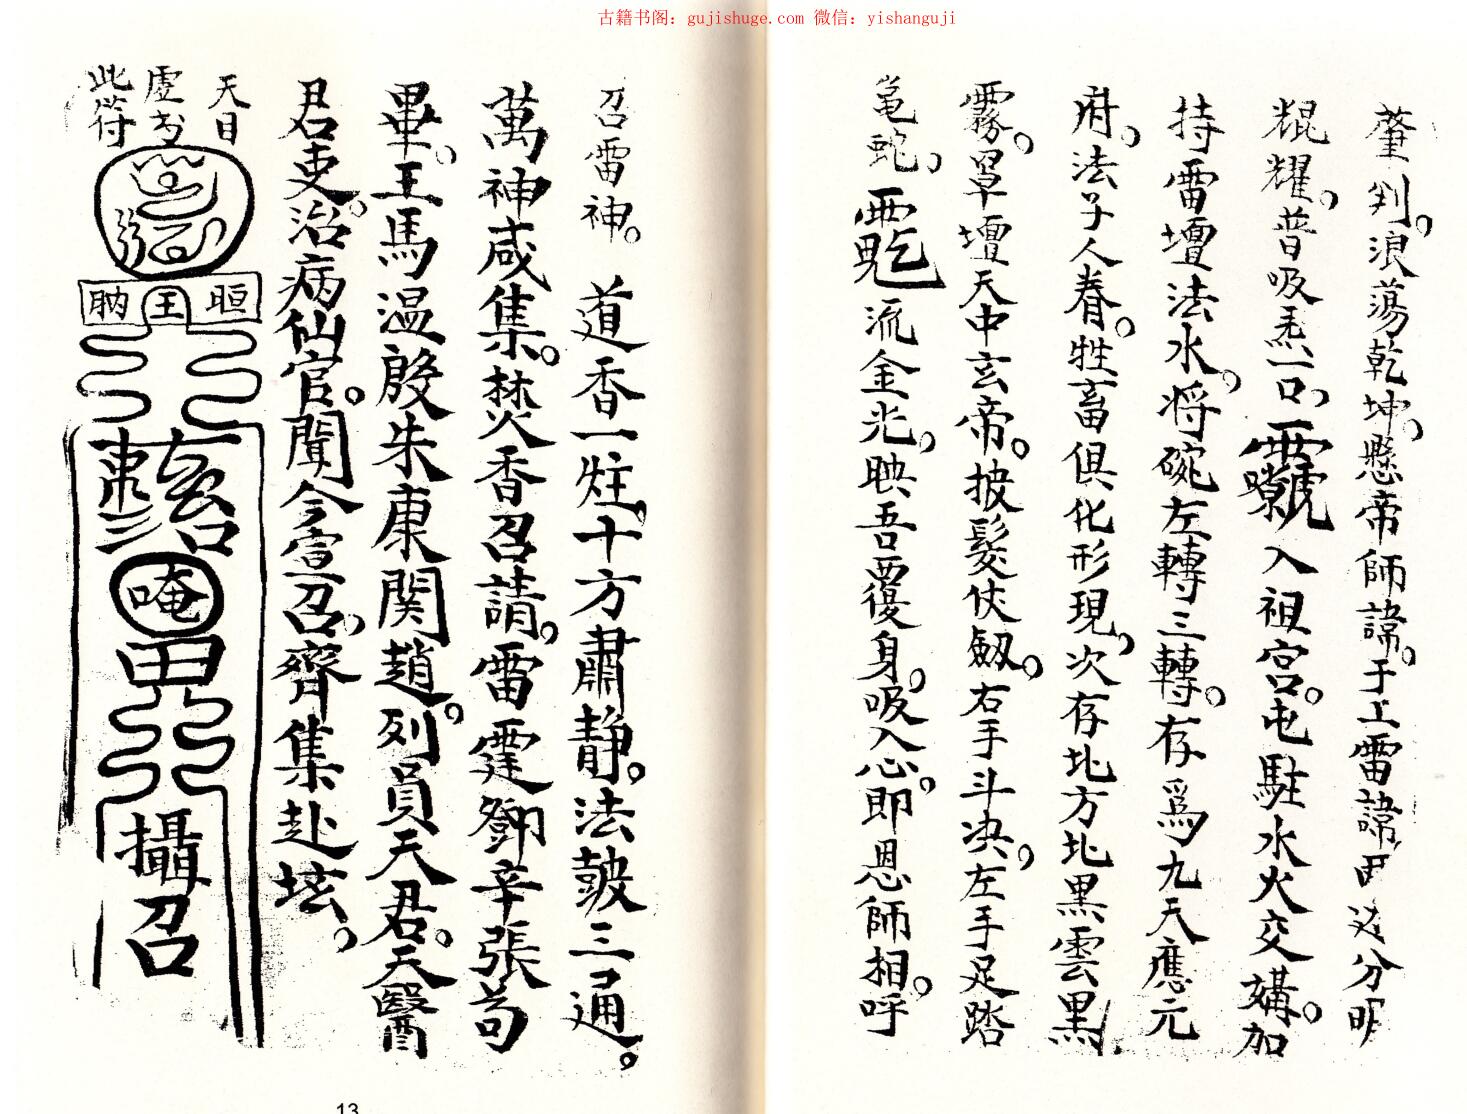 古籍书阁：gujishuge.com 微信：yishanguji
肇判。浪蕩乾坤。懸帝師諱。于上雷諱 分明
焜耀。普吸炁一口，入祖宮。屯駐水火交媾。加
持雷壇法水，将碗左轉三轉。存爲九天應元
府。法子人眷。牲畜俱化形現，次存北方北黑雲黑
霧。罩壇天中玄帝。披髮仗劔。右手斗决，左手足踏
龜蛇。流金光，映吾覆身。吸入心。即恩師相。呼
召雷神。道香一炷，十方肅静。法鼓三通。
萬神咸集。焚香召請。雷霆鄧辛張苟
畢。王馬温殷朱康関趙。列員天君。天醫
君吏。治病仙官。聞今宣召。齊集赴坛。
天目
虚书
此符
晅王昫
唵
攝召
13